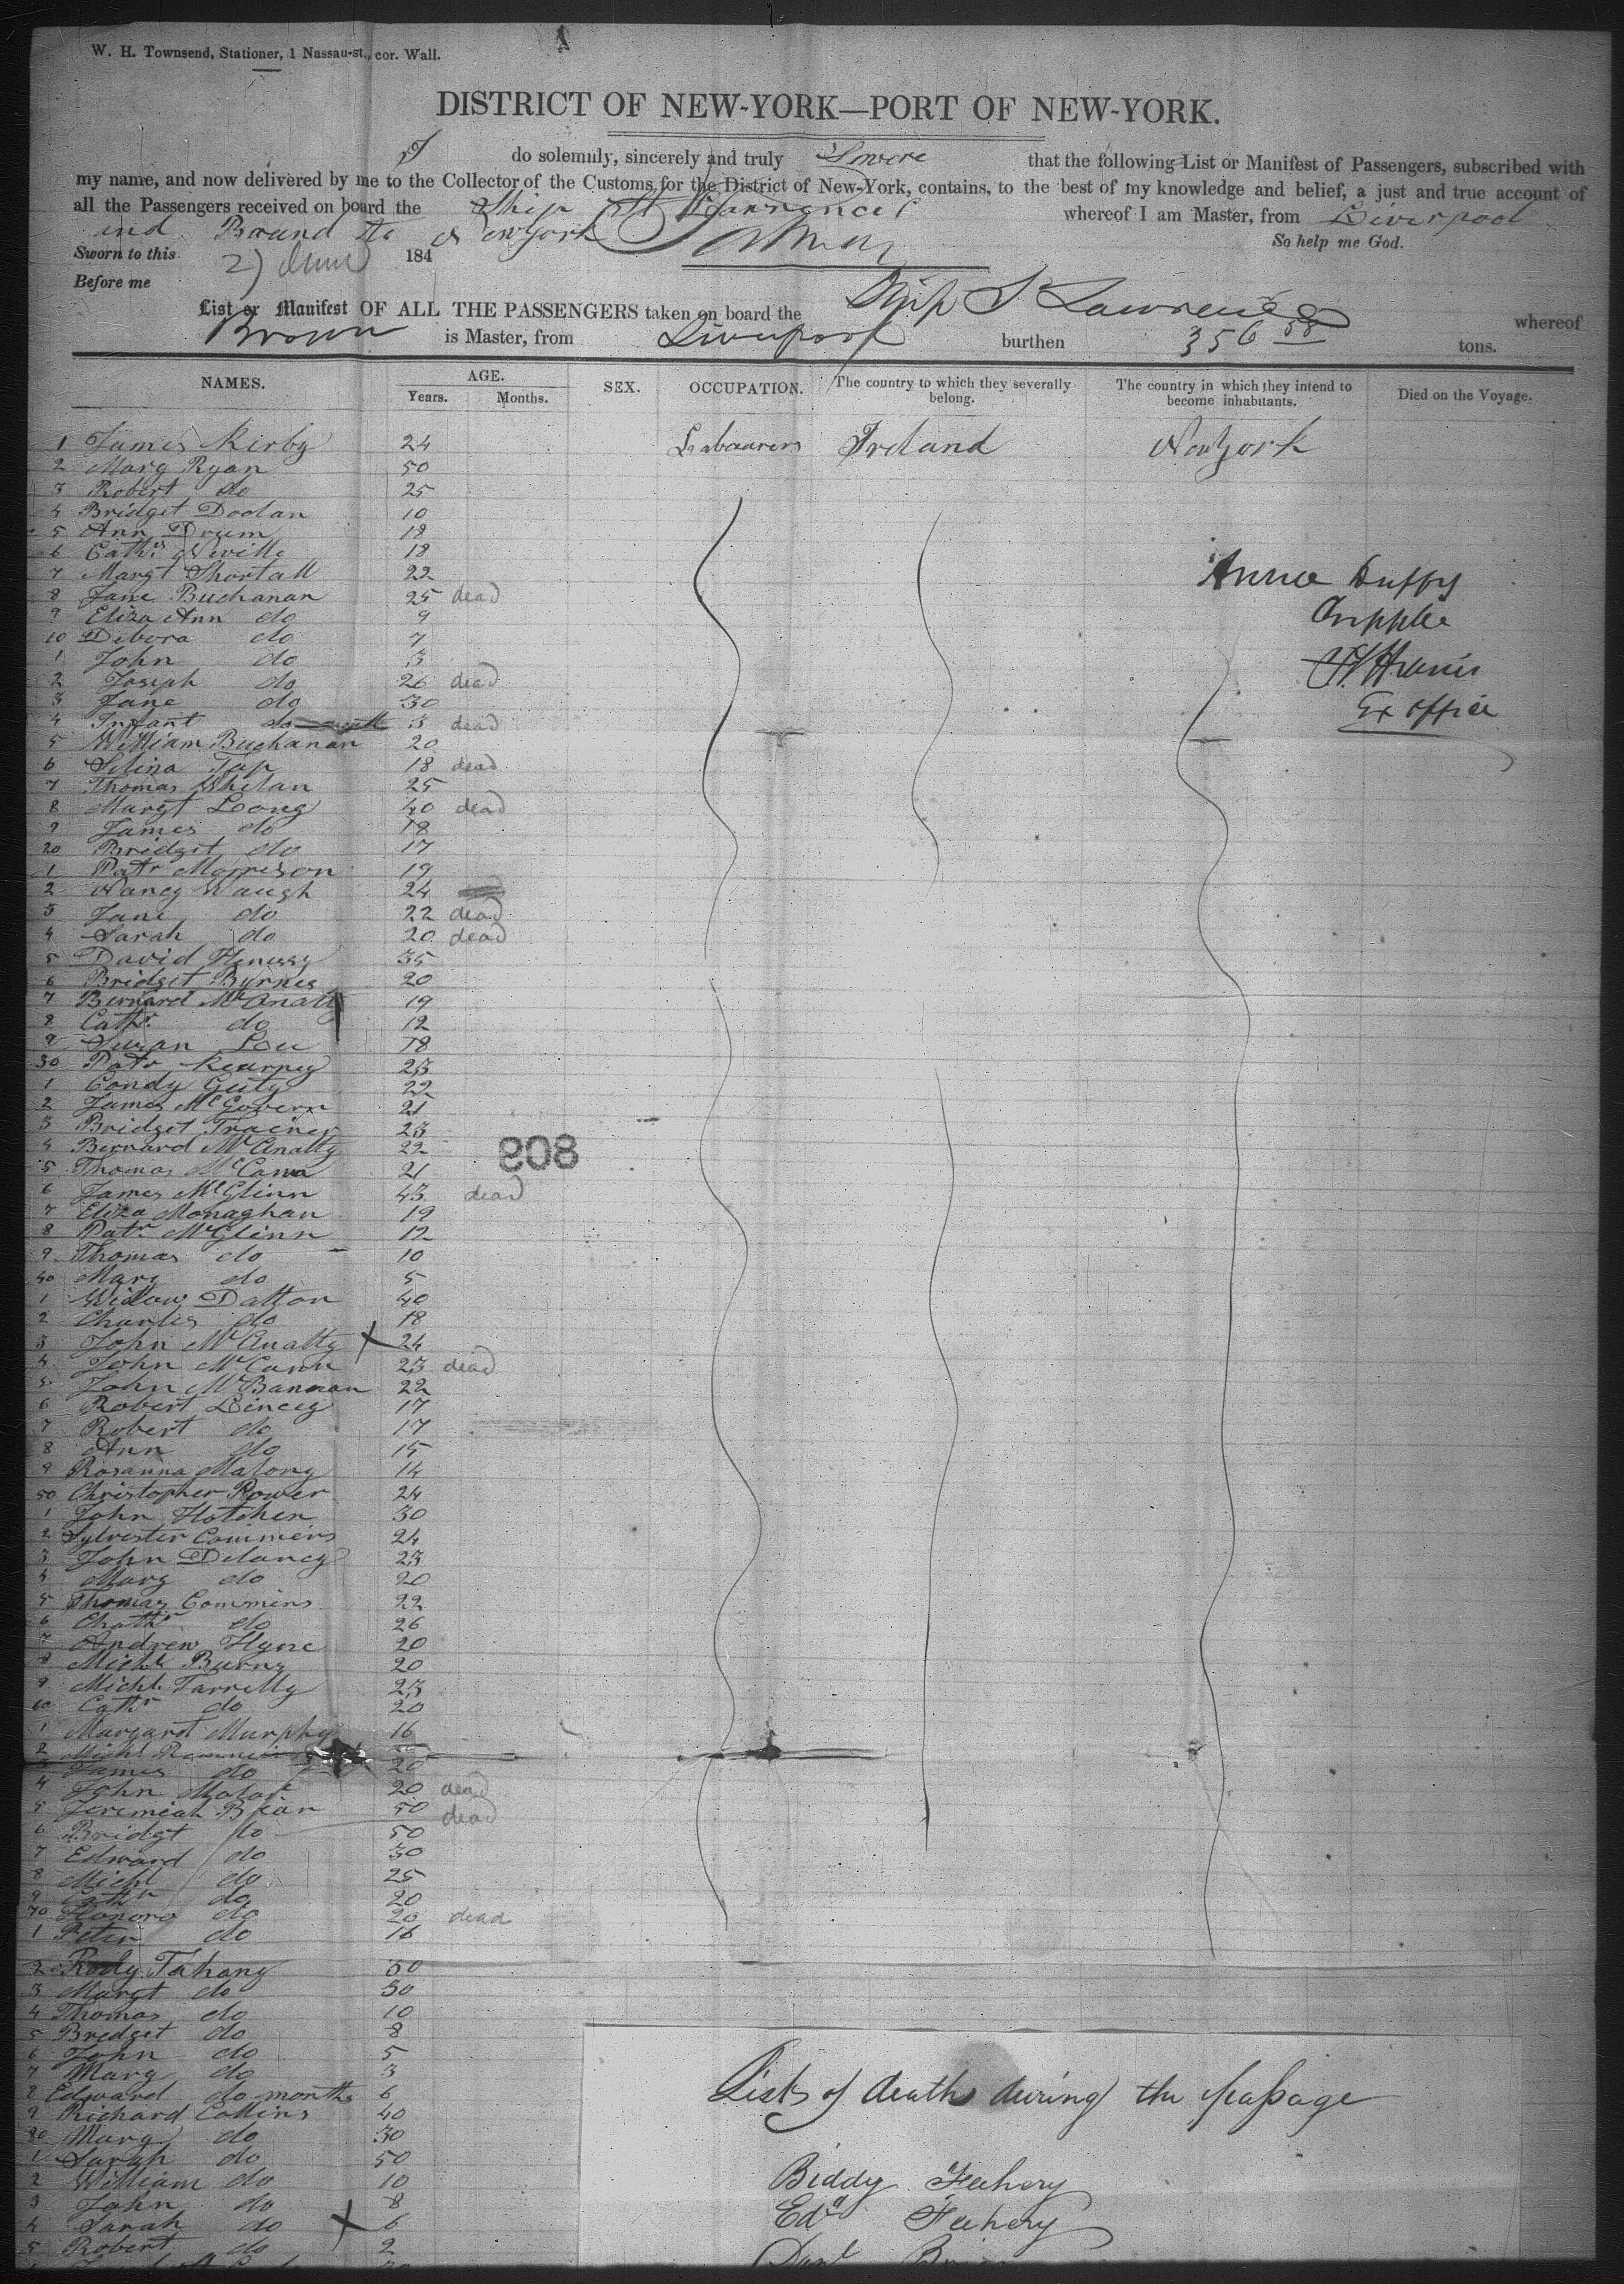 W. H. Townsend, Stationer, 1 Nassau-st., cor. Wall.
DISTRICT OF NEW-YORK—PORT OF NEW-YORK.
I do solemnly, sincerely and truly Swere that the following List or Manifest of Passengers, subscribed with
my name, and now delivered by me to the Collector of the Customs for the District of New-York, contains, to the best of my knowledge and belief, a just and true account of
all the Passengers received on board the Ship St Lawrence whereof I am Master, from Liverpool
and Bound to Newyork
So help me God.
Sworn to this 2) June 184
Before me
List or Manifest OF ALL THE PASSENGERS taken on board the Ship St Lawrence whereof
Brown is Master, from Liverpool burthen 356 58 tons.
NAMES. AGE. SEX. OCCUPATION. The country to which they severally belong. The country in which they intend to become inhabitants. Died on the Voyage.
Years. Months.
1 James Kirby 24 Labaurers Ireland New York
2 Mary Ryan 50
3 Robert do 25
4 Bridget Doolan 10
5 Ann Drum 18
6 Cathr Neville 18
7 Margt Shortall 22
8 Jane Buchanan 25 dead
9 Eliza Ann do 9
10 Debora do 7
1 John do 3
2 Joseph do 26 dead
3 Jane do 30
4 Infant do 3 dead
5 William Buchanan 20
6 Selina Jap 18 dead
7 Thomas Whelan 25
8 Margt Long 40 dead
9 James do 18
20 Bridget do 17
1 Patr Morrison 19
2 Nancy Waugh 24
3 Jane do 22 dead
4 Sarah do 20 dead
5 David Henessy 35
6 Bridget Byrnes 20
7 Bernard McAnalty 19
8 Cathr do 12
9 Susan Lou 18
30 Patr Kearney 23
1 Condy Guty 22
2 James McGovern 21
3 Bridget Trainer 23
4 Bernard McAnalty 22
5 Thomas McCann 21
6 James McGlinn 43 dead
7 Eliza Monaghan 19
8 Patr McGlinn 12
9 Thomas do 10
40 Mary do 5
1 Widow Datton 40
2 Charles do 18
3 John McAnalty X 24
4 John McCann 23 dead
5 John McBannan 22
6 Robert Lincey 17
7 Robert do 17
8 Ann do 15
9 Rosanna Malony 14
50 Christopher Rower 24
1 John Hotchen 30
2 Sylvester Commens 24
3 John Delancy 23
4 Mary do 20
5 Thomas Commins 22
6 Chathr do 26
7 Andrew Hyne 20
8 Michl Burns 20
9 Michl Farrelly 23
60 Cathr do 20
1 Margaret Murphy 16
2 Michl
3 James do 20
4 John 20 dead
5 Jeremiah 50 dead
6 Bridgt do 50
7 Edward do 30
8 Michl do 25
9 Cathr do 20
70 Honoro do 20 dead
1 Peter do 16
2 Rody Fahany 50
3 Margt do 30
4 Thomas do 10
5 Bredget do 8
6 John do 5
7 Mary do 3
8 Edward do months 6
9 Richard Collins 40
80 Mary do 30
1 Sarah do 50
2 William do 10
3 John do 8
4 Sarah do X 6
5 Robert do 2
Annie Duffy
Cripple
Ex office
808
Lists of deaths during the passage
Biddy Feehery
Edd Feehery
Danl